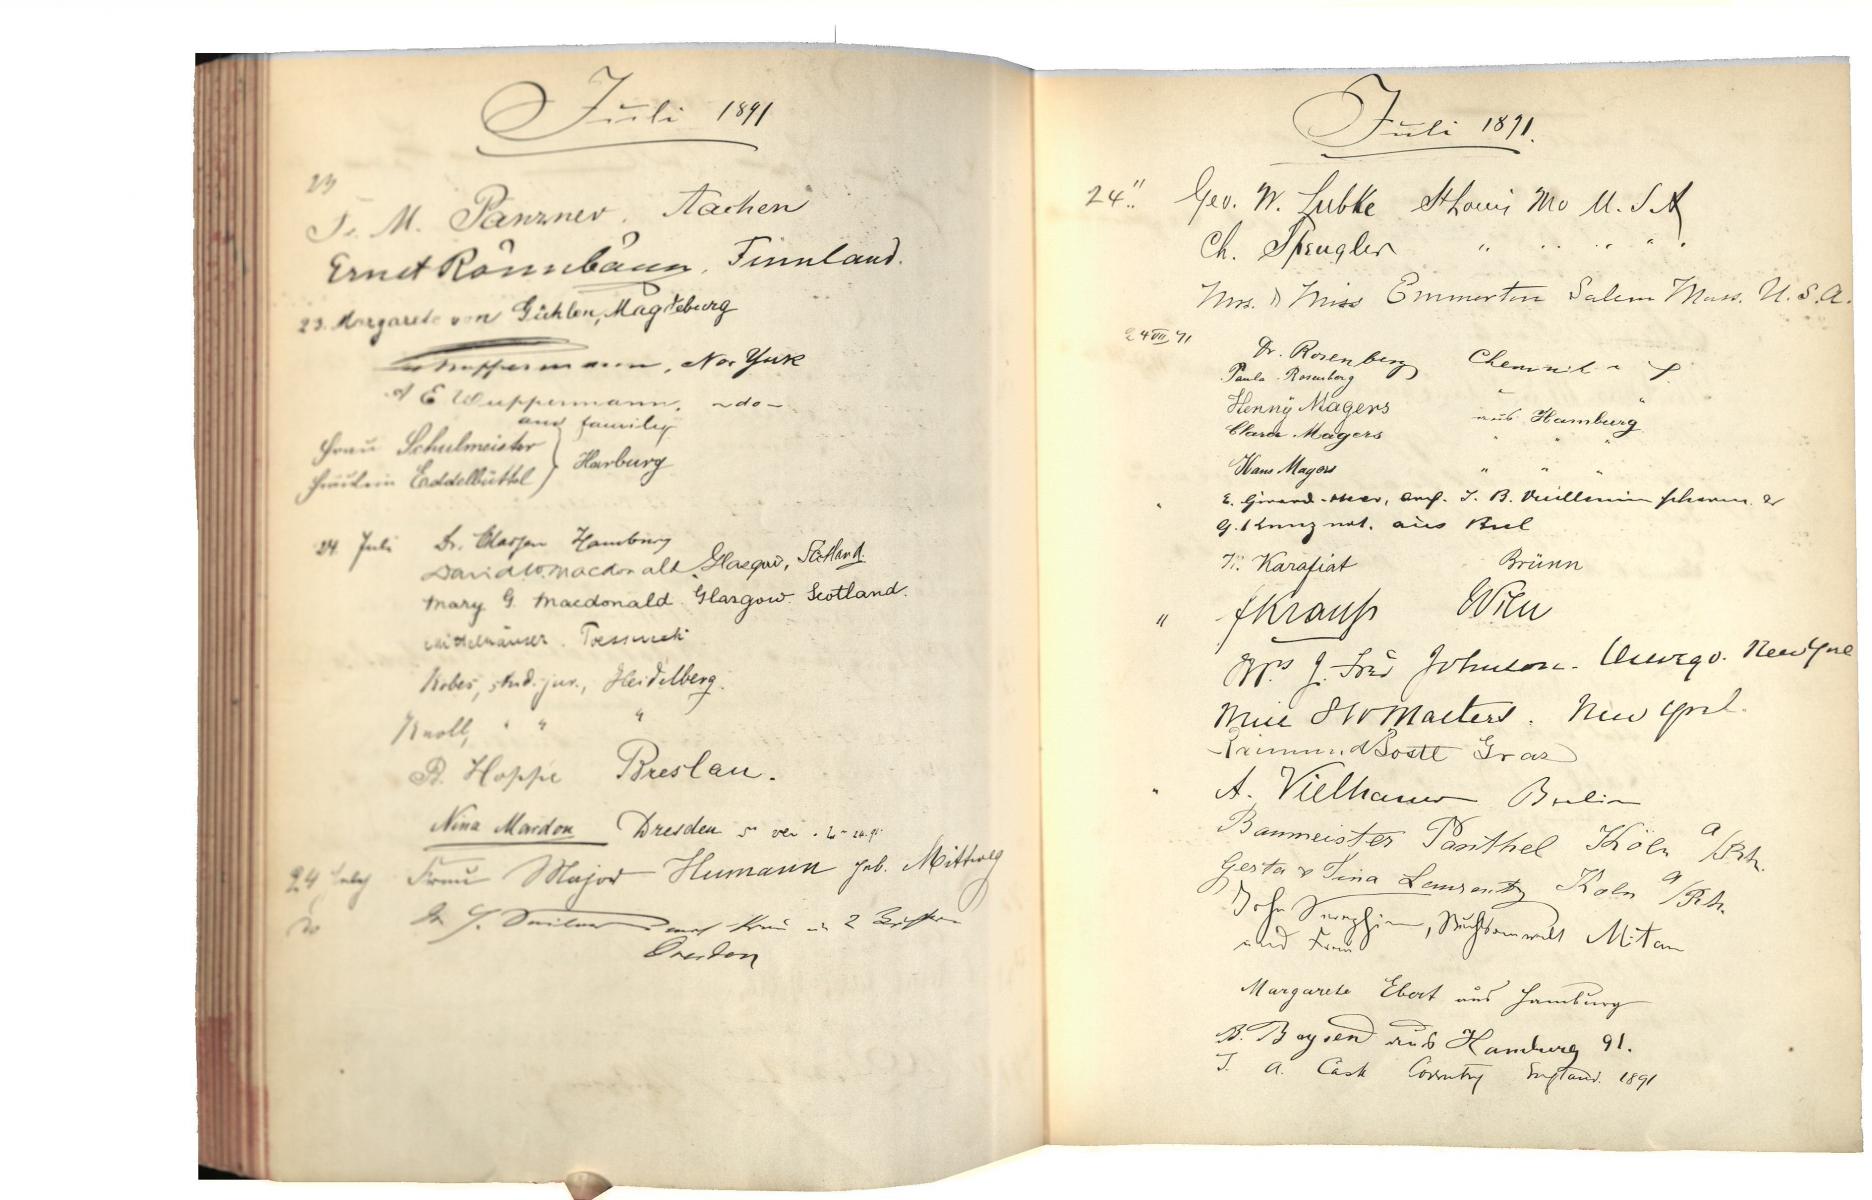 Juli 1891
23
Fr. M. Panzner. Aachen
Ernst Rönnbäck, Finnland.
23. Margarete von Gühlen, Magdeburg
Wuppermann, New York
A E Wuppermann. - do -
and family
Frau Schulmeister
Fräulein Eddelbüttel } Harburg
24. Juli Dr. Classen Hamburg
David W. Macdonald Glasgow, Scotland.
Mary G. Macdonald Glasgow. Scotland.
Kobes, stud. jur., Heidelberg.
Knoll, " " "
R. Hoppe Breslau.
Nina Mardon Dresden
24 July Frau Major Humann geb. Mittweg
do Dr. 2
Dresden
Juli 1891.
24". Geo. W. Lubke St Louis Mo U. S A
Ch. Spengler " " " " "
Mrs. & Miss Emmerton Salem Mass. U. S. A.
24 VII 91
Dr. Rosenberg Chemnitz
Paula Rosenberg " "
Henny Magers aus Hamburg
Clara Magers " " "
Hans Magers " " "
E. J. B. Vuillemin pharm. &
G. Kunz not. aus Biel
K. Karafiat Brünn
" f Krauß Wien
J. Johnson. Oswego. New York
Miss S W Masters. New York.
Raimund Postl Graz
" A. Vielhauer Berlin
Baumeister Panthel Köln a/Rh.
Gerta & Tina Laurentz Koeln a/Rh.
John , Rechtsanwalt Mitau
und Frau
Margarete Ebert aus Hamburg
B. Boysen aus Hamburg 91.
J. A. Cash Coventry England. 1891